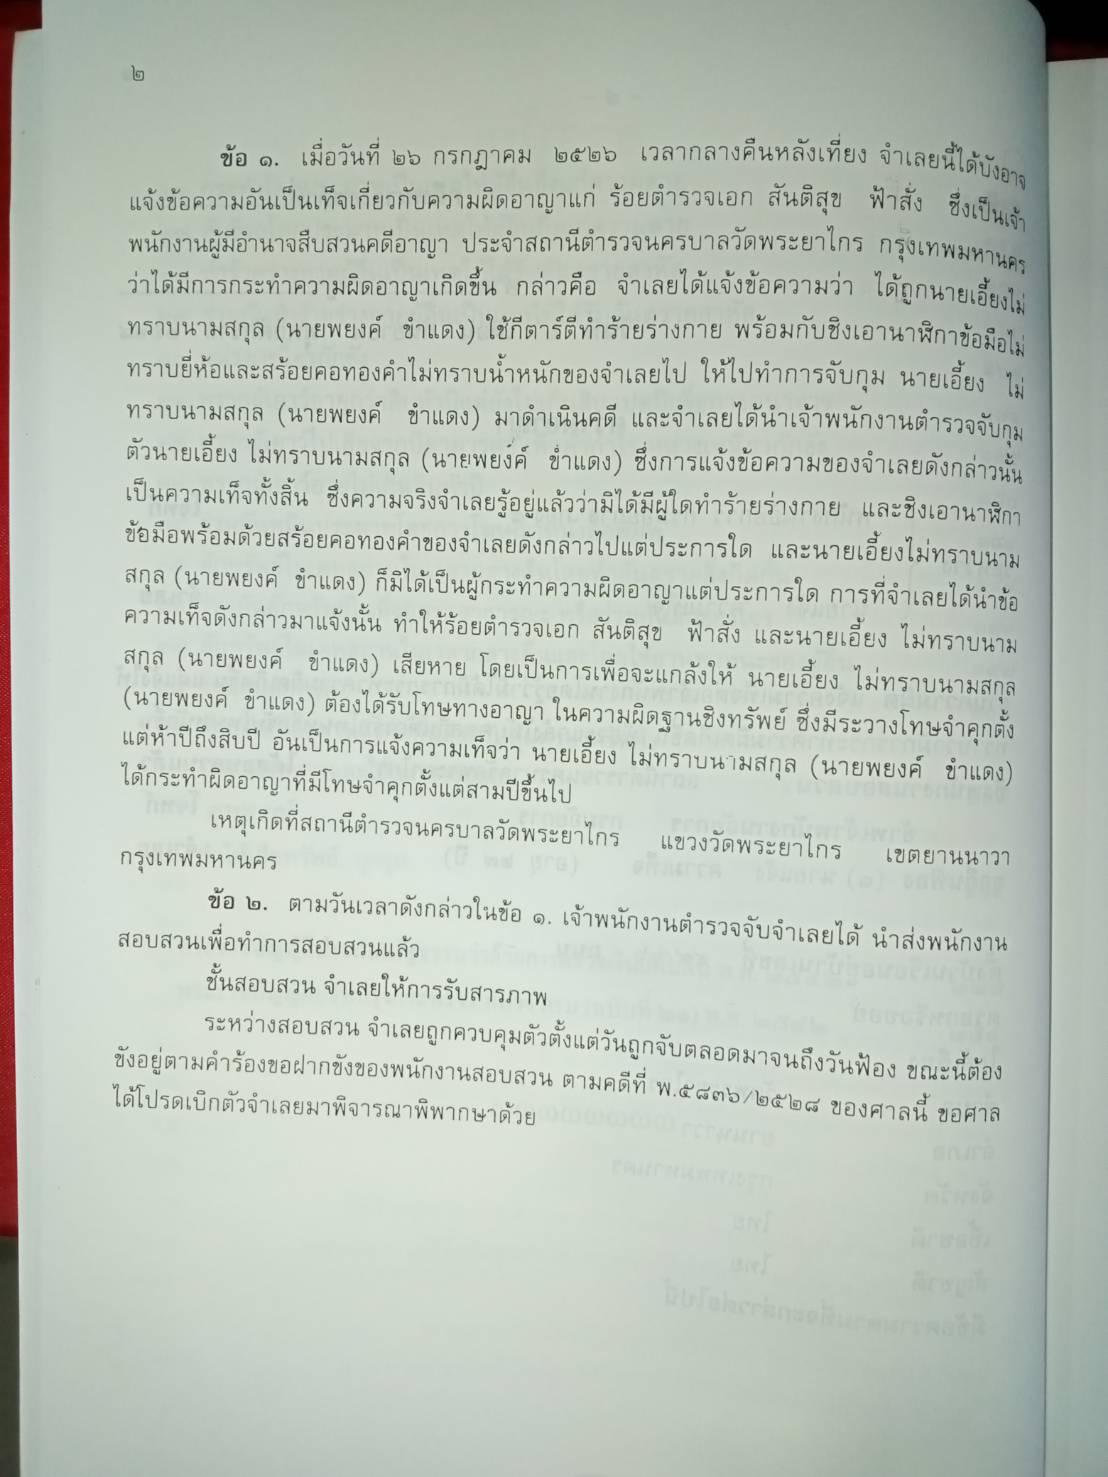 ๒
ข้อ ๑. เมื่อวันที่ ๒๖ กรกฎาคม ๒๕๒๖ เวลากลางคืนหลังเที่ยง จำเลยนี้ได้บังอาจ
แจ้งข้อความอันเป็นเท็จเกี่ยวกับความผิดอาญาแก่ ร้อยตำรวจเอก สันติสุข ฟ้าสั่ง ซึ่งเป็นเจ้า
พนักงานผู้มีอำนาจสืบสวนคดีอาญา ประจำสถานีตำรวจนครบาลวัดพระยาไกร กรุงเทพมหานคร
ว่าได้มีการกระทำความผิดอาญาเกิดขึ้น กล่าวคือ จำเลยได้แจ้งข้อความว่า ได้ถูกนายเอี้ยงไม่
ทราบนามสกุล (นายพยงค์ ขำแดง) ใช้กีตาร์ตีทำร้ายร่างกาย พร้อมกับชิงเอานาฬิกาข้อมือไม่
ทราบยี่ห้อและสร้อยคอทองคำไม่ทราบน้ำหนักของจำเลยไป ให้ไปทำการจับกุม นายเอี้ยง ไม่
ทราบนามสกุล (นายพยงค์ ขำแดง) มาดำเนินคดี และจำเลยได้นำเจ้าพนักงานตำรวจจับกุม
ตัวนายเอี้ยง ไม่ทราบนามสกุล (นายพยงค์ ขำแดง) ซึ่งการแจ้งข้อความของจำเลยดังกล่าวนั้น
เป็นความเท็จทั้งสิ้น ซึ่งความจริงจำเลยรู้อยู่แล้วว่ามิได้มีผู้ใดทำร้ายร่างกาย และชิงเอานาฬิกา
ข้อมือพร้อมด้วยสร้อยคอทองคำของจำเลยดังกล่าวไปแต่ประการใด และนายเอี้ยงไม่ทราบนาม
สกุล (นายพยงค์ ขำแดง) ก็มิได้เป็นผู้กระทำความผิดอาญาแต่ประการใด การที่จำเลยได้นำข้อ
ความเท็จดังกล่าวมาแจ้งนั้น ทำให้ร้อยตำรวจเอก สันติสุข ฟ้าสั่ง และนายเอี้ยง ไม่ทราบนาม
สกุล (นายพยงค์ ขำแดง) เสียหาย โดยเป็นการเพื่อจะแกล้งให้ นายเอี้ยง ไม่ทราบนามสกุล
(นายพยงค์ ขำแดง) ต้องได้รับโทษทางอาญา ในความผิดฐานชิงทรัพย์ ซึ่งมีระวางโทษจำคุกตั้ง
แต่ห้าปีถึงสิบปี อันเป็นการแจ้งความเท็จว่า นายเอี้ยง ไม่ทราบนามสกุล (นายพยงค์ ขำแดง)
ได้กระทำผิดอาญาที่มีโทษจำคุกตั้งแต่สามปีขึ้นไป
เหตุเกิดที่สถานีตำรวจนครบาลวัดพระยาไกร แขวงวัดพระยาไกร เขตยานนาวา
กรุงเทพมหานคร
ข้อ ๒. ตามวันเวลาดังกล่าวในข้อ ๑. เจ้าพนักงานตำรวจจับจำเลยได้ นำส่งพนักงาน
สอบสวนเพื่อทำการสอบสวนแล้ว
ชั้นสอบสวน จำเลยให้การรับสารภาพ
ระหว่างสอบสวน จำเลยถูกควบคุมตัวตั้งแต่วันถูกจับตลอดมาจนถึงวันฟ้อง ขณะนี้ต้อง
ขังอยู่ตามคำร้องขอฝากขังของพนักงานสอบสวน ตามคดีที่ พ.๕๘๓๖/๒๕๒๘ ของศาลนี้ ขอศาล
ได้โปรดเบิกตัวจำเลยมาพิจารณาพิพากษาด้วย